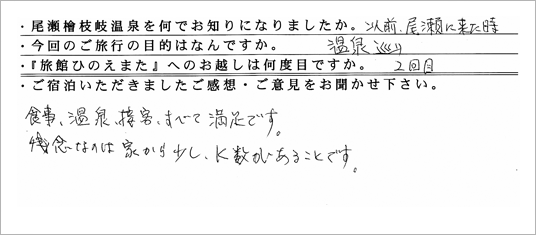 ・尾瀬檜枝岐温泉を何でお知りになりましたか。以前、尾瀬に来た時
・今回のご旅行の目的はなんですか。 温泉巡り
・『旅館ひのえまた』へのお越しは何度目ですか。 2回目
・ご宿泊いただきましたご感想・ご意見をお聞かせ下さい。
食事、温泉、接客、すべて満足です。
残念なのは家から少し、K数があることです。